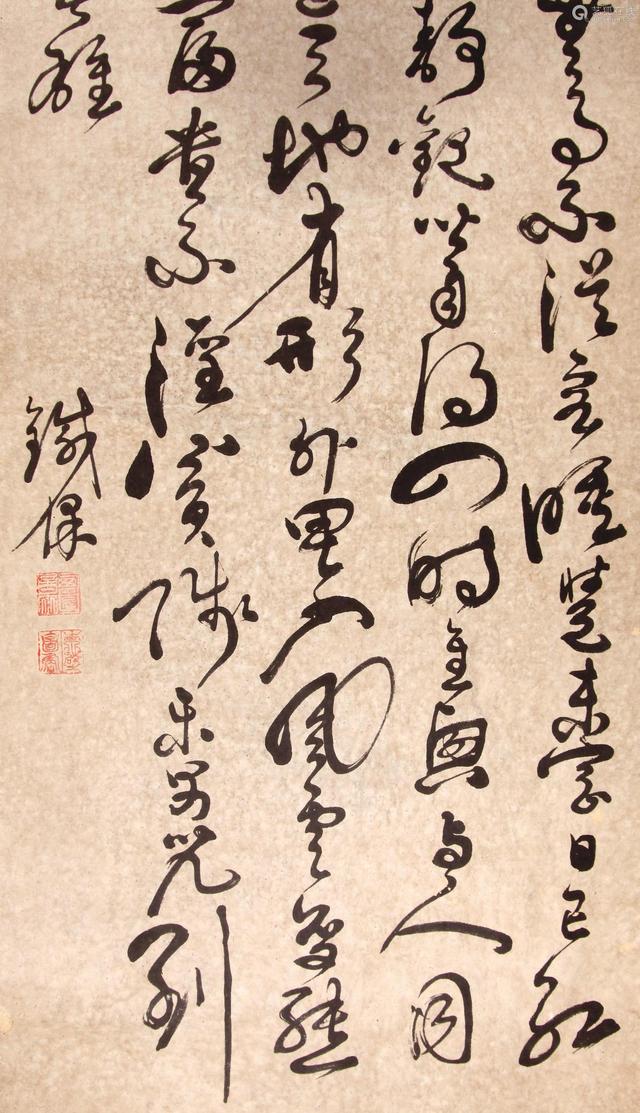 無事不從容睡覺東窗日已紅
靜觀皆自得四時佳興與人同
天地有形外思入風雲變態
富貴不淫貧賤樂男兒到
雄
鐵保